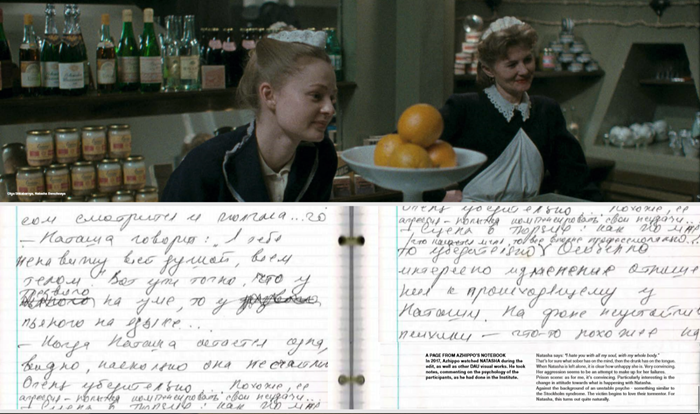 Olga Shkabarnya, Natasha Berezhnaya
сом смотрится и
— Наташа говорит: „Я тебя
ненавижу всей душой, всем
телом" Вот уж точно, что у
трезвого
на уме, то у
пьяного на языке...
— Когда Наташа остается одна,
видно, насколько она несчастли
Очень убедительно Похоже, ее
агрессия – попытка компенсировать свои неудачи..
— Сцена в тюрьме: как по мне
Очень убедительно Похоже, ее
агрессия – попытка компенсировать свои неудачи..
— Сцена в тюрьме: как по мне
то убедительно Особенно
интересно изменение отноше
ния к происходящему у
Наташи. На фоне неустойчив
психики – что-то похожее на
A PAGE FROM AZHIPPO'S NOTEBOOK
In 2017, Azhippo watched NATASHA during the
edit, as well as other DAU visual works. He took
notes, commenting on the psychology of the
participants, as he had done in the Institute.
Natasha says: "I hate you with all my soul, with my whole body."
That's for sure what sober has on the mind, then the drunk has on the tongue.
When Natasha is left alone, it is clear how unhappy she is. Very convincing
Her aggression seems to be an attempt to make up for her failures.
Prison scene: as for me, it's convincing. Particularly interesting is the
change in attitude towards what is happening with Natasha.
Against the background of an unstable psyche - something similar to
the Stockholm syndrome. The victim begins to love their tormentor. For
Natasha, this turns out quite naturally.